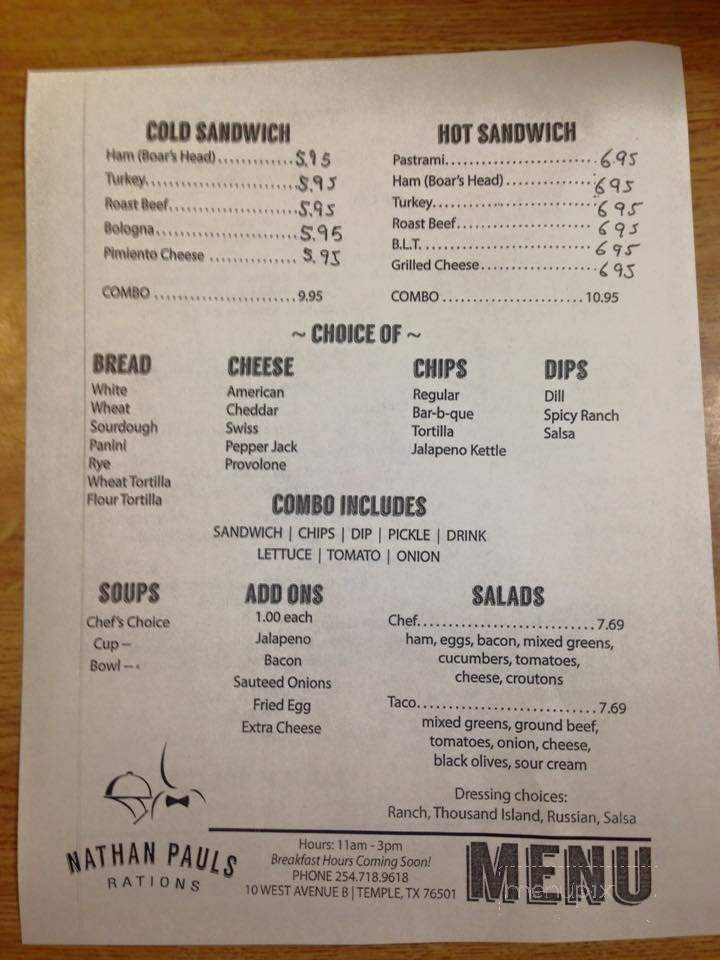 COLD SANDWICH
Ham (Boar's Head).............5.95
Turkey..........................5.95
Roast Beef......................5.95
Bologna.........................5.95
Pimiento Cheese ............... 5.95
COMBO ........................9.95
HOT SANDWICH
Pastrami...........................6.95
Ham (Boar's Head)...............6.95
Turkey.............................6.95
Roast Beef........................6.95
B.L.T. .............................6.95
Grilled Cheese....................6.95
COMBO .........................10.95
~ CHOICE OF ~
BREAD
White
Wheat
Sourdough
Panini
Rye
Wheat Tortilla
Flour Tortilla
CHEESE
American
Cheddar
Swiss
Pepper Jack
Provolone
CHIPS
Regular
Bar-b-que
Tortilla
Jalapeno Kettle
DIPS
Dill
Spicy Ranch
Salsa
COMBO INCLUDES
SANDWICH | CHIPS | DIP | PICKLE | DRINK
LETTUCE | TOMATO | ONION
SOUPS
Chef's Choice
Cup –
Bowl –
ADD ONS
1.00 each
Jalapeno
Bacon
Sauteed Onions
Fried Egg
Extra Cheese
SALADS
Chef...............................7.69
ham, eggs, bacon, mixed greens,
cucumbers, tomatoes,
cheese, croutons
Taco...............................7.69
mixed greens, ground beef,
tomatoes, onion, cheese,
black olives, sour cream
Dressing choices:
Ranch, Thousand Island, Russian, Salsa
NATHAN PAULS
RATIONS
Hours: 11am - 3pm
Breakfast Hours Coming Soon!
PHONE 254.718.9618
10 WEST AVENUE B | TEMPLE, TX 76501
MENU
menupix